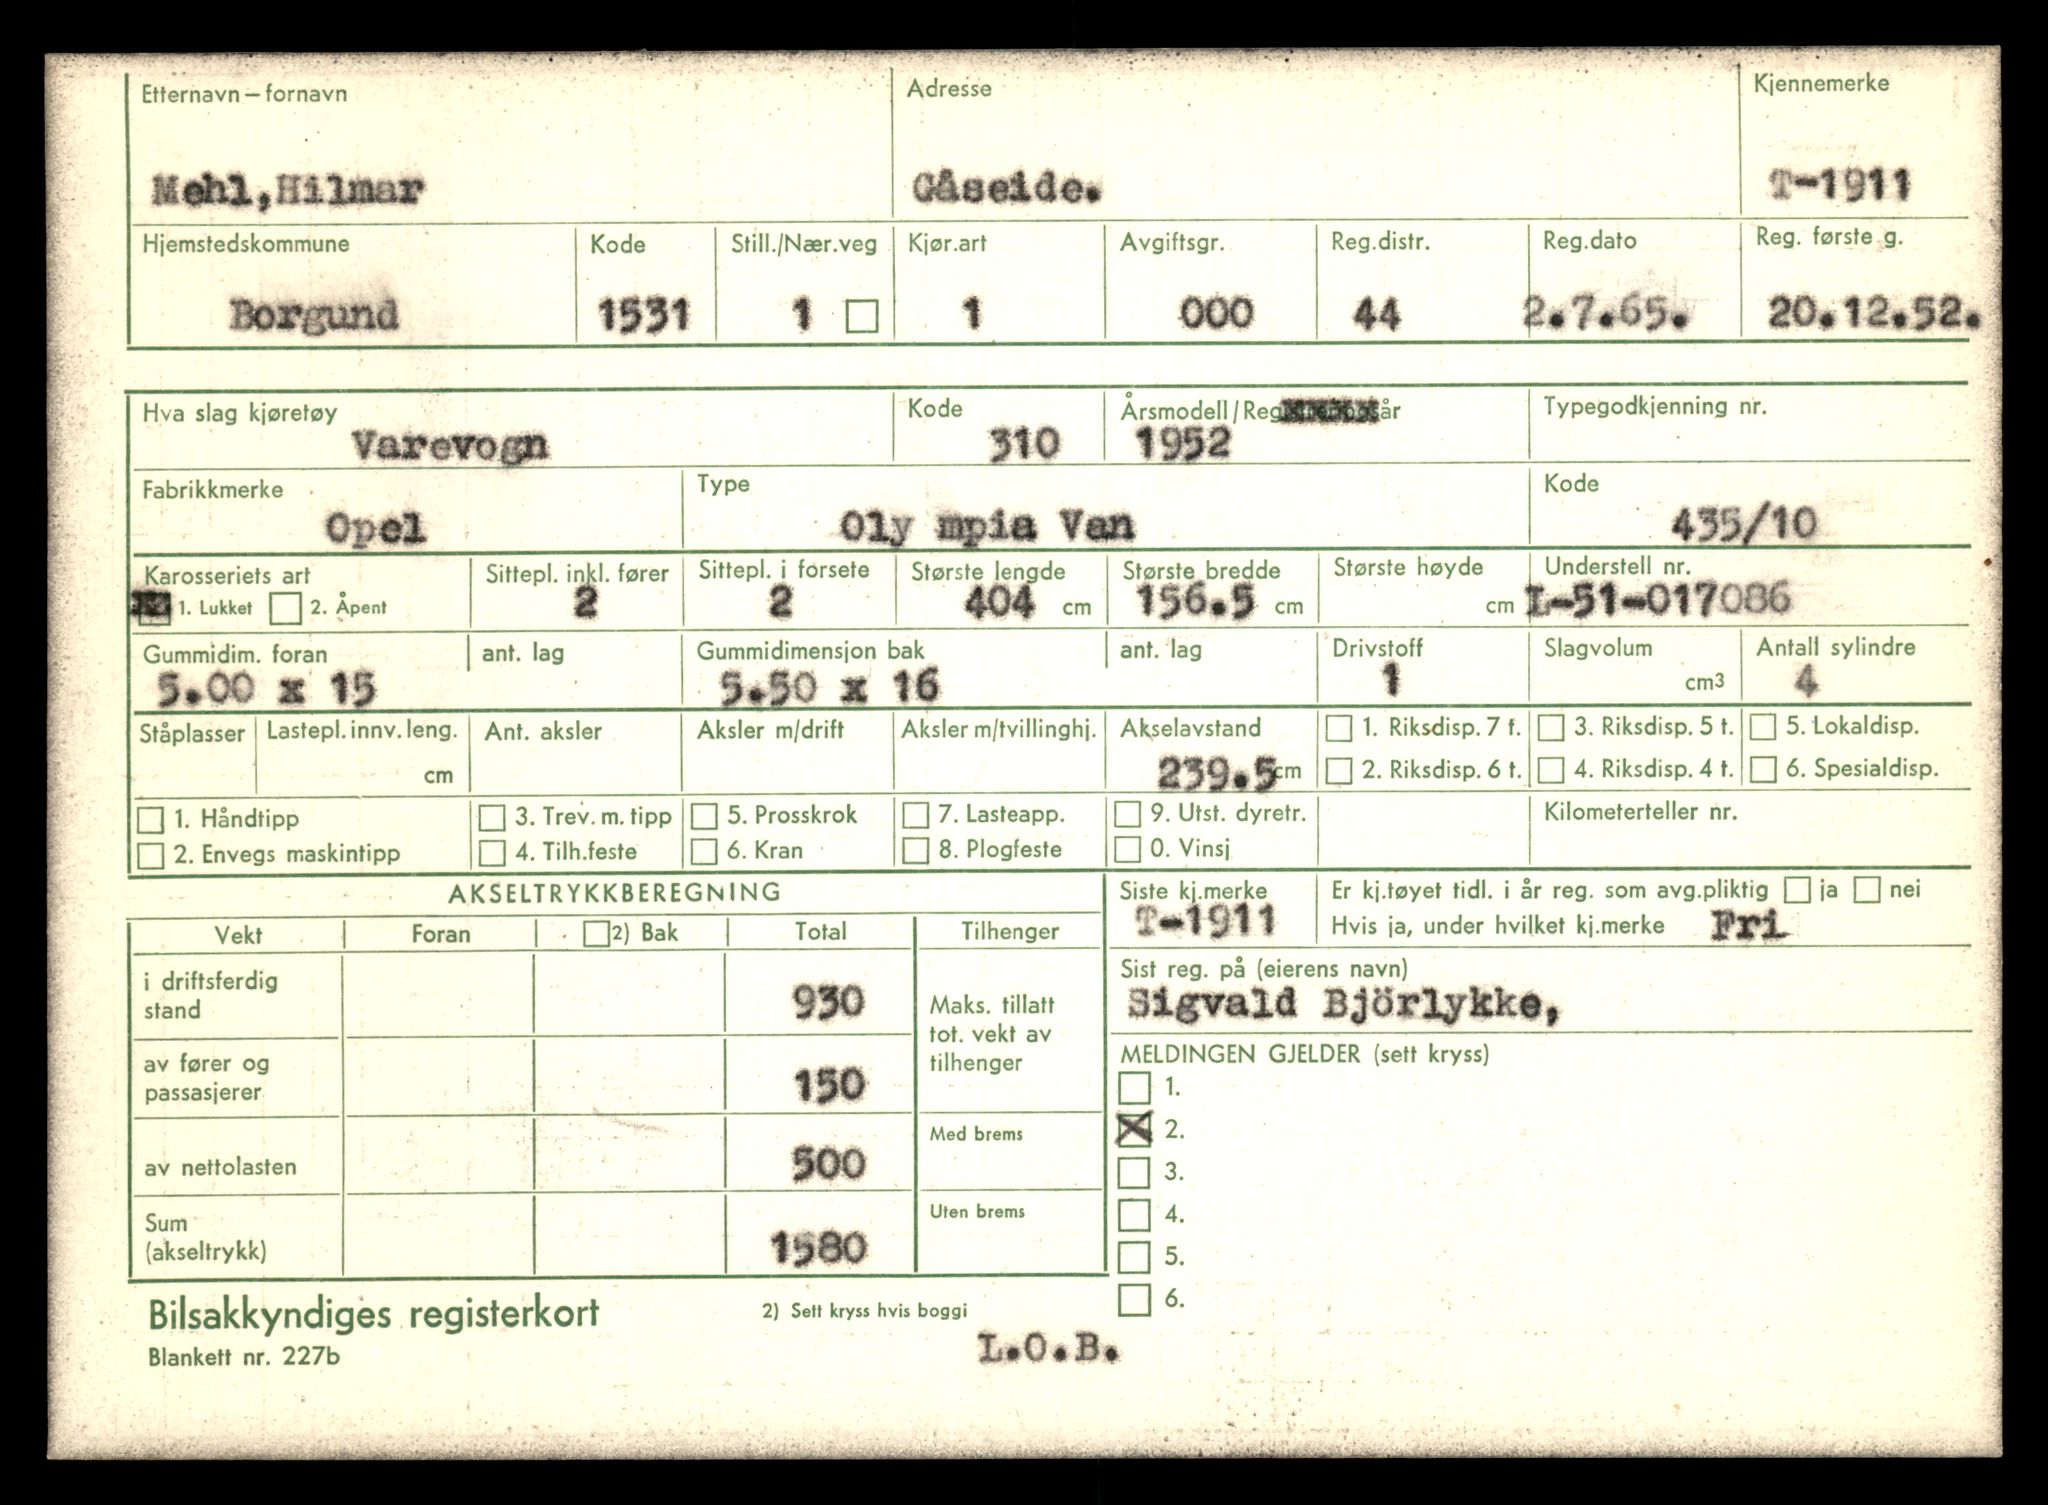 Etternavn – fornavn Adresse Kjennemerke
Mehl,Hilmar Gåseide. T-1911
Hjemstedskommune Kode Still./Nær.veg Kjør.art Avgiftsgr. Reg.distr. Reg.dato Reg. første g.
Borgund 1531 1 1 000 44 2.7.65. 20.12.52.
Hva slag kjøretøy Kode Årsmodell/Registreringsår Typegodkjenning nr.
Varevogn 310 1952
Fabrikkmerke Type Kode
Opel Oly mpia Van 435/10
Karosseriets art Sittepl. inkl. fører Sittepl. i forsete Største lengde Største bredde Største høyde Understell nr.
1. Lukket 2. Åpent 2 2 404 cm 156.5 cm cm L-51-017086
Gummidim. foran ant. lag Gummidimensjon bak ant. lag Drivstoff Slagvolum Antall sylindre
5.00 x 15 5.50 x 16 1 cm3 4
Ståplasser Lastepl. innv. leng. Ant. aksler Aksler m/drift Aksler m/tvillinghj. Akselavstand 1. Riksdisp. 7 t. 3. Riksdisp. 5 t. 5. Lokaldisp.
cm 239.5 cm 2. Riksdisp. 6 t. 4. Riksdisp. 4 t. 6. Spesialdisp.
1. Håndtipp 3. Trev. m. tipp 5. Prosskrok 7. Lasteapp. 9. Utst. dyretr. Kilometerteller nr.
2. Envegs maskintipp 4. Tilh.feste 6. Kran 8. Plogfeste 0. Vinsj
AKSELTRYKKBEREGNING
Vekt Foran 2) Bak Total Tilhenger
i driftsferdig stand 930
Maks. tillatt
tot. vekt av
tilhenger
av fører og
passasjerer 150
Med brems
av nettolasten 500
Uten brems
Sum
(akseltrykk) 1580
Siste kj.merke Er kj.tøyet tidl. i år reg. som avg.pliktig ja nei
T-1911 Hvis ja, under hvilket kj.merke Fri
Sist reg. på (eierens navn)
Sigvald Björlykke,
MELDINGEN GJELDER (sett kryss)
1.
X 2.
3.
4.
5.
6.
Bilsakkyndiges registerkort 2) Sett kryss hvis boggi
Blankett nr. 227b L.O.B.